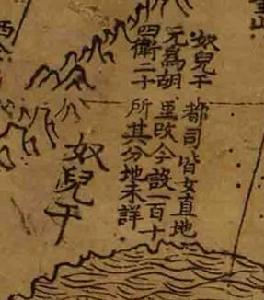 奴兒干都司皆女直地
元為胡里改今設一百十
四衛二十所其分地未詳
奴兒干